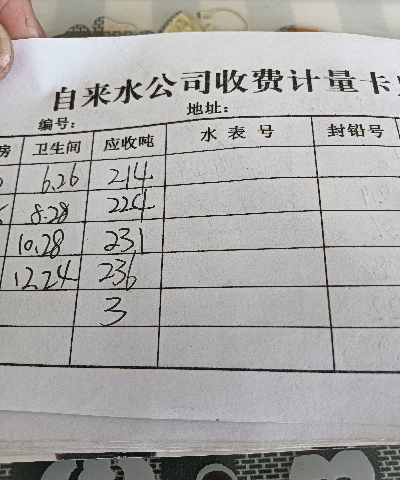 自来水公司收费计量卡
编号: 地址:
房 卫生间 应收吨 水表号 封铅号
6.26 214
8.28 224
10.28 231
12.24 236
3